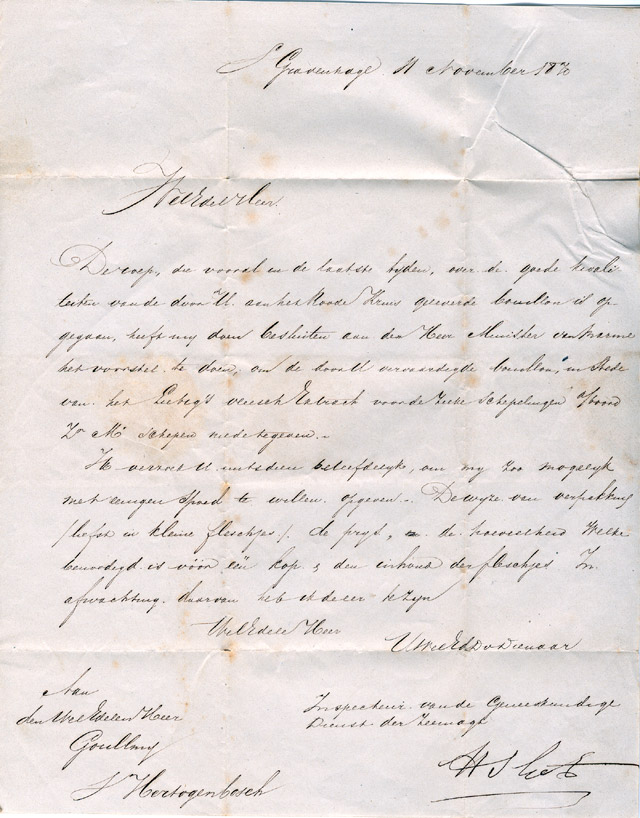 S Gravenhage 11 November 1870
WelEdel Heer.
De roep, die vooral in de laatste tijden, over de goede kwali
teiten van de door U. aan het Roode Kruis geleverde bouillon is op
gegaan, heeft my doen besluiten aan den Heer Minister van Marine
het voorstel te doen, om de door U vervaardigde bouillon, in Stede
van het Liebig's vleesch Extract voor de Zieke Schepelingen a/boord
Zr Ms Schepen mede te geven.-
Ik verzoek U mitsdien beleefdelyk, om my Zoo mogelyk
met eenigen Spoed te willen opgeven.- De wyze van verpakking
/liefst in kleine fleschjes/. de prys, de hoeveelheid Welke
benoodigd is vóór één kop & den inhoud der fleschjes In
afwachting daarvan heb ik de eer te Zyn
WelEdele Heer
UWelEdDvDienaar
Aan
den WelEdelen Heer
Goulmy
S Hertogenbosch
Inspecteur van de Geneeskundige
Dienst der Zeemagt